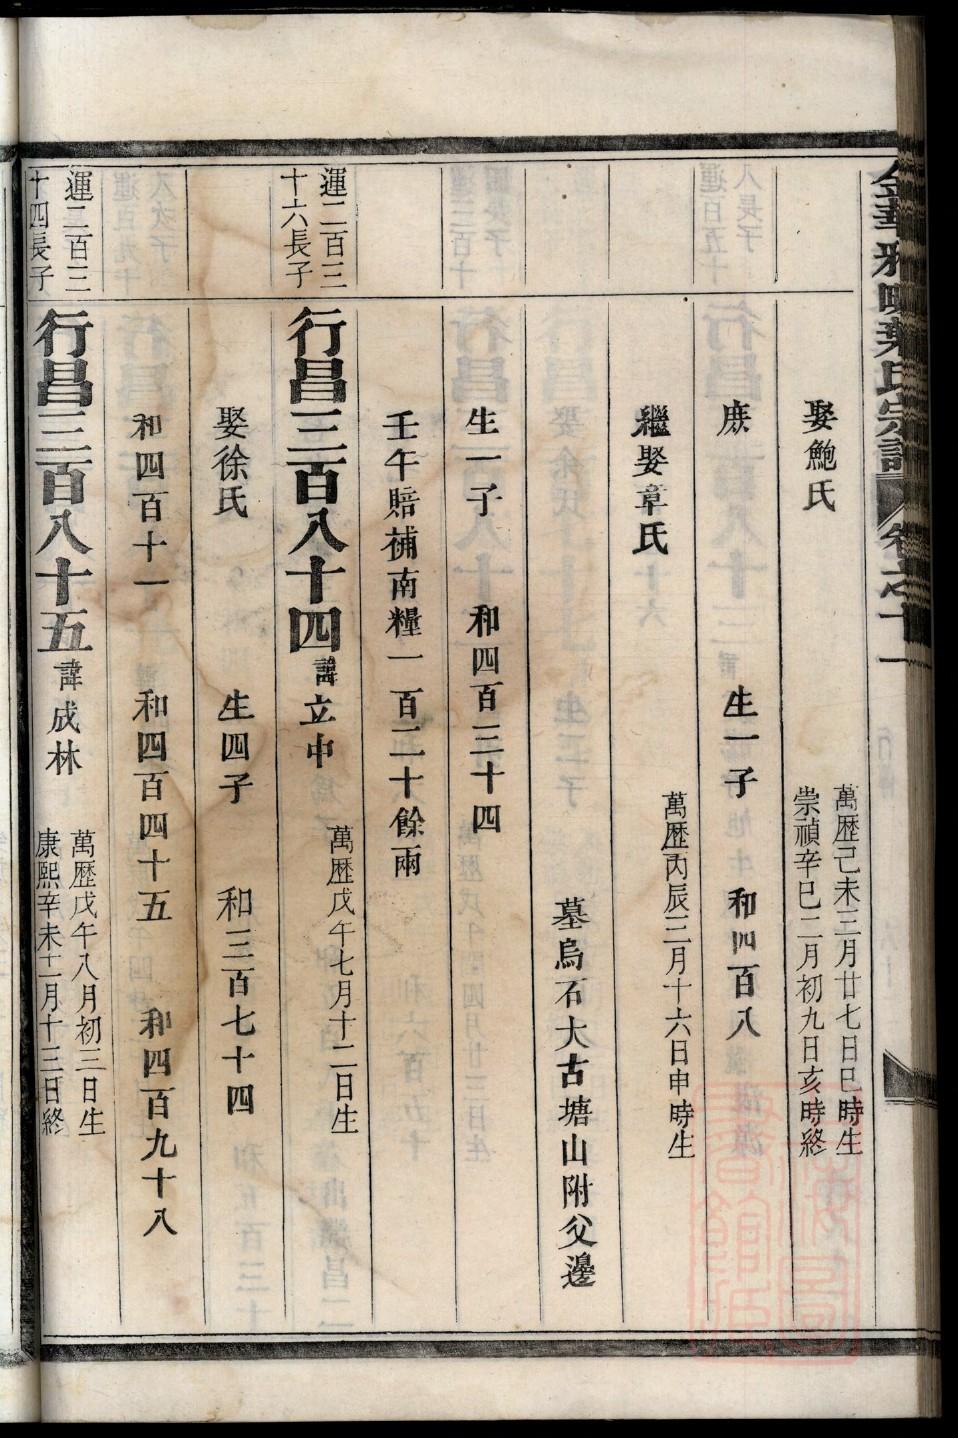 金華雅畈葉氏宗譜 卷之十一
娶鮑氏
萬歷己未三月廿七日巳時生
崇禎辛巳二月初九日亥時終
庶
生一子
和四百八
繼娶章氏
萬歷丙辰三月十六日申時生
墓烏石大古塘山附父邊
生一子
和四百三十四
壬午賠補南糧一百二十餘兩
運二百三
十六長子
行昌三百八十四
諱立中
萬歷戊午七月十二日生
娶徐氏
生四子
和三百七十四
和四百十一
和四百四十五
和四百九十八
運二百三
十四長子
行昌三百八十五
諱成林
萬歷戊午八月初三日生
康熙辛未十一月十三日終